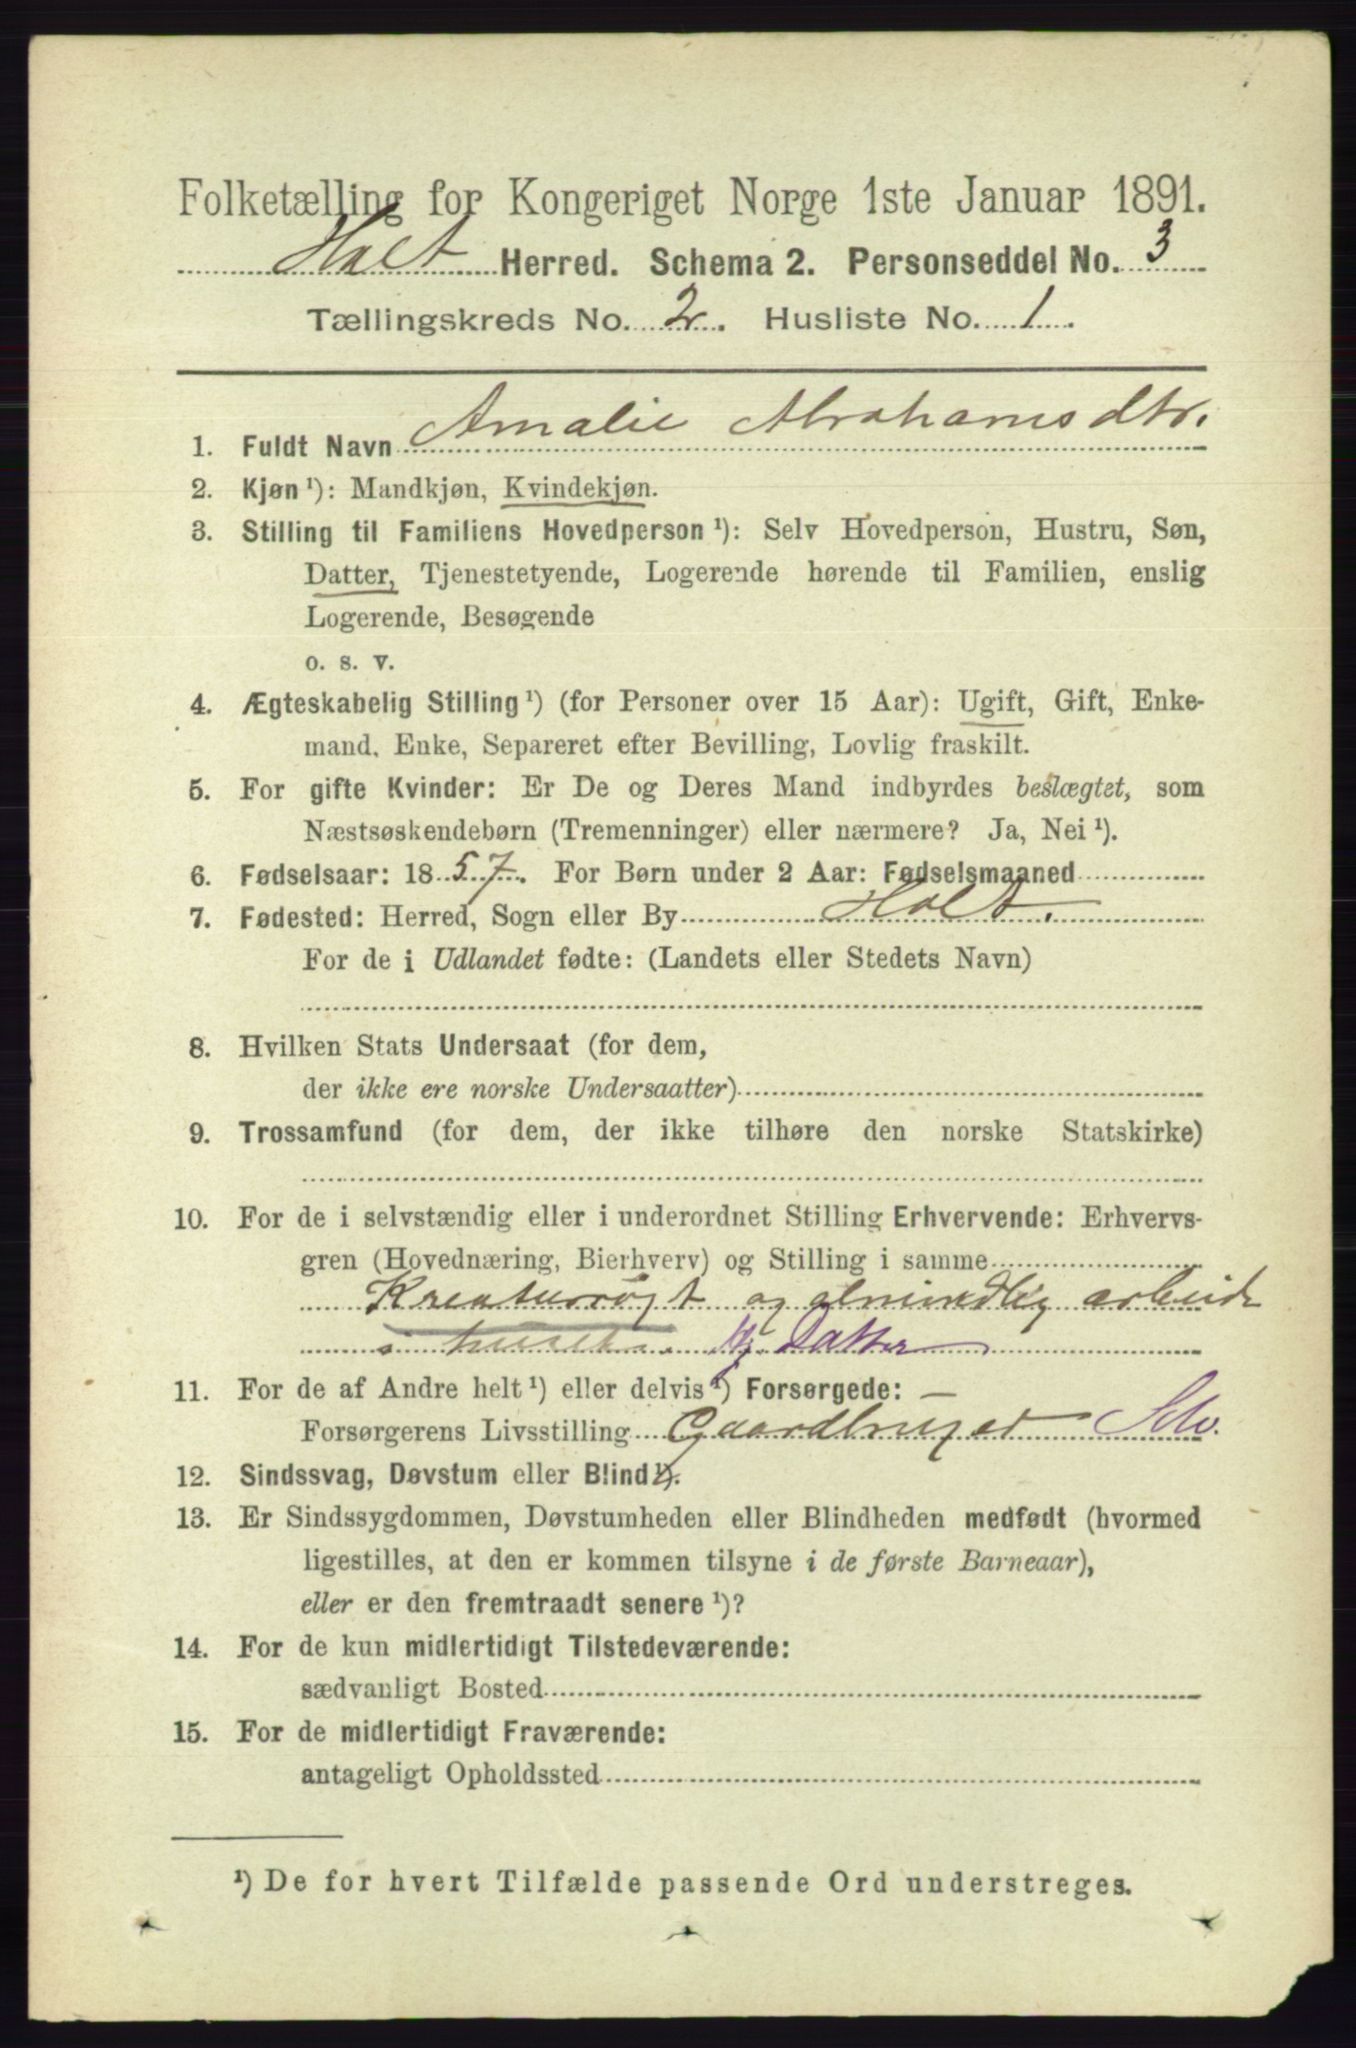 Folketælling for Kongeriget Norge 1ste Januar 1891.
Holt Herred. Schema 2. Personseddel No. 3
Tællingskreds No. 2. Husliste No. 1.
1. Fuldt Navn Amalie Abrahamsdtr.
2. Kjøn ¹): Mandkjøn, Kvindekjøn.
3. Stilling til Familiens Hovedperson ¹): Selv Hovedperson, Hustru, Søn,
Datter, Tjenestetyende, Logerende hørende til Familien, enslig
Logerende, Besøgende
o. s. v.
4. Ægteskabelig Stilling ¹) (for Personer over 15 Aar): Ugift, Gift, Enke-
mand, Enke, Separeret efter Bevilling, Lovlig fraskilt.
5. For gifte Kvinder: Er De og Deres Mand indbyrdes beslægtet, som
Næstsøskendebørn (Tremenninger) eller nærmere? Ja, Nei ¹).
6. Fødselsaar: 1857. For Børn under 2 Aar: Fødselsmaaned
7. Fødested: Herred, Sogn eller By Holt.
For de i Udlandet fødte: (Landets eller Stedets Navn)
8. Hvilken Stats Undersaat (for dem,
der ikke ere norske Undersaatter)
9. Trossamfund (for dem, der ikke tilhøre den norske Statskirke)
10. For de i selvstændig eller i underordnet Stilling Erhvervende: Erhvervs-
gren (Hovednæring, Bierhverv) og Stilling i samme
Kreaturrøgt og almindlig arbeide
i huset. Datter
11. For de af Andre helt ¹) eller delvis ¹) Forsørgede: —
Forsørgerens Livsstilling Gaardbruger Selv.
12. Sindssvag, Døvstum eller Blind ¹).
13. Er Sindssygdommen, Døvstumheden eller Blindheden medfødt (hvormed
ligestilles, at den er kommen tilsyne i de første Barneaar),
eller er den fremtraadt senere ¹)?
14. For de kun midlertidigt Tilstedeværende:
sædvanligt Bosted
15. For de midlertidigt Fraværende:
antageligt Opholdssted
¹) De for hvert Tilfælde passende Ord understreges.